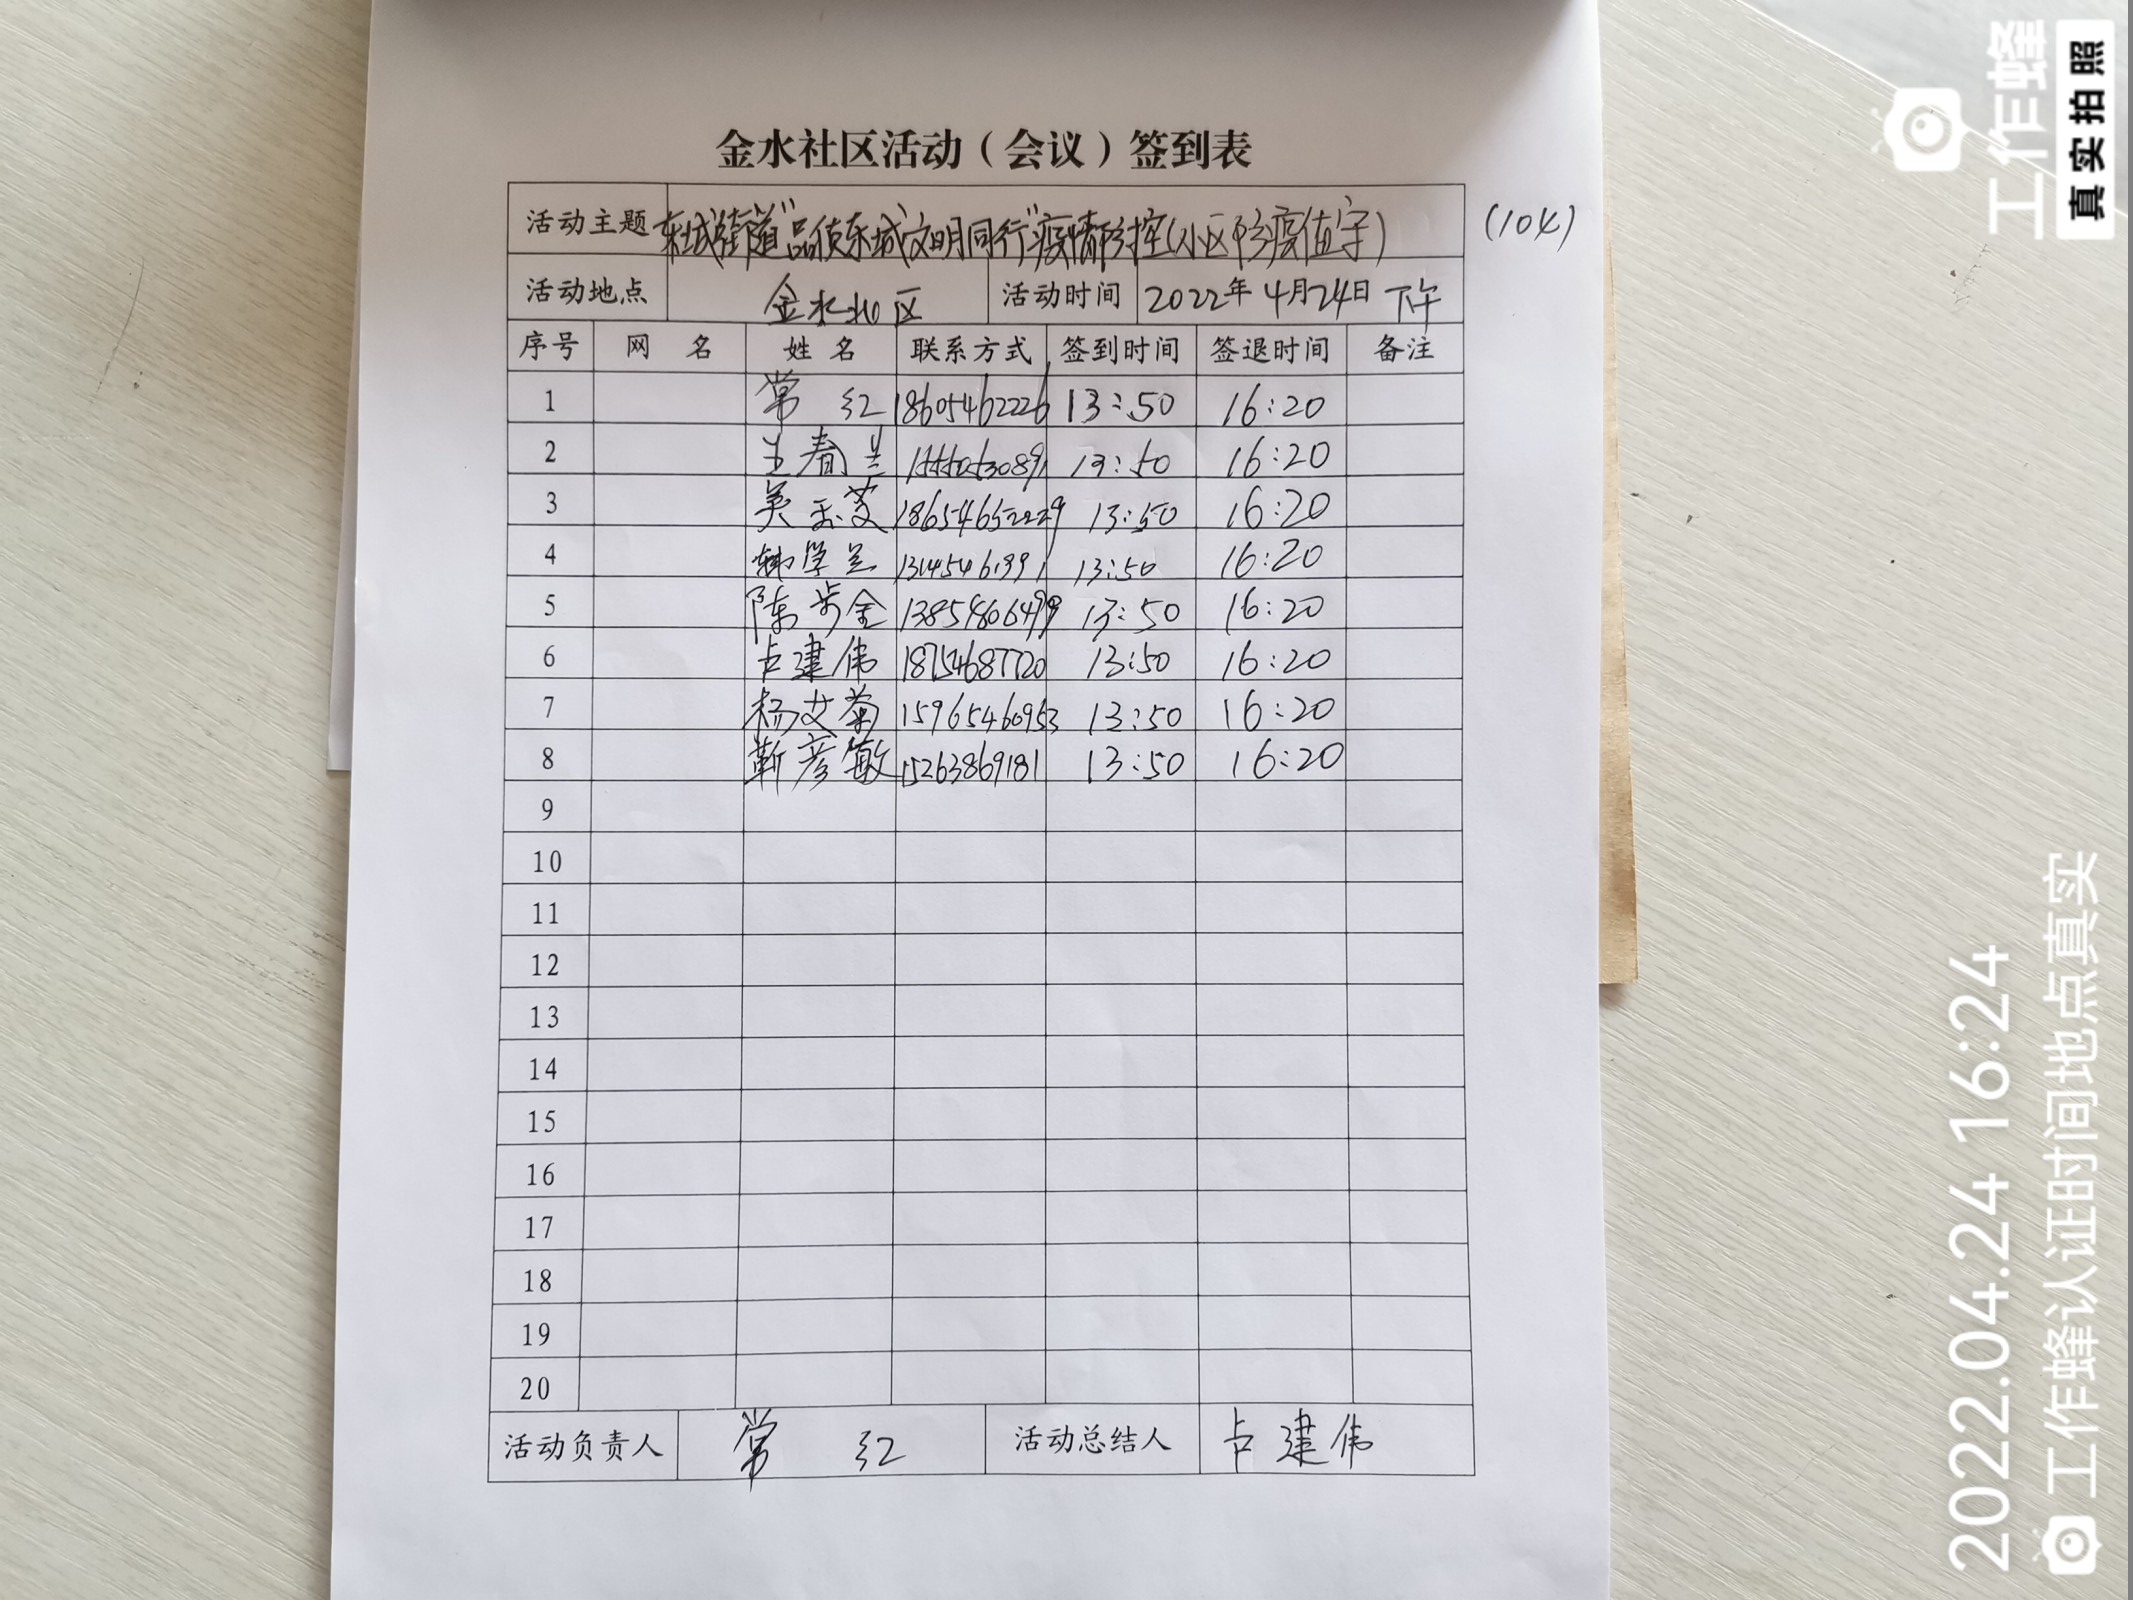 金水社区活动（会议）签到表
活动主题 东城街道"品质东城 文明同行"疫情防控(小区防疫值守) (104)
活动地点 金水北区 活动时间 2022年4月24日 下午
序号 网名 姓名 联系方式 签到时间 签退时间 备注
1 常红 18605462226 13:50 16:20
2 王春兰 13:50 16:20
3 吴玉芝 13:50 16:20
4 韩学兰 13:50 16:20
5 陈步金 13:50 16:20
6 占建伟 18754687720 13:50 16:20
7 杨艾菊 15965460953 13:50 16:20
8 靳彦敏 15263869181 13:50 16:20
9
10
11
12
13
14
15
16
17
18
19
20
活动负责人 常红 活动总结人 占建伟
工作蜂
真实拍照
2022.04.24 16:24
工作蜂认证时间地点真实